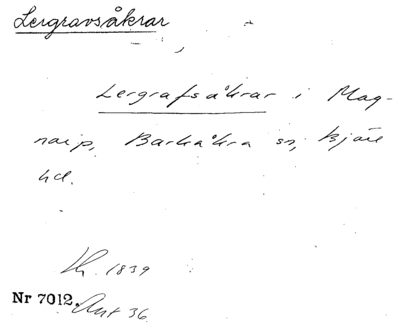 Lergravsåkrar
Lergrafsåkrar i Mag-
narp, Barkåkra sn, Bjäre
hd.
1839
Nr 7012. Akt 36